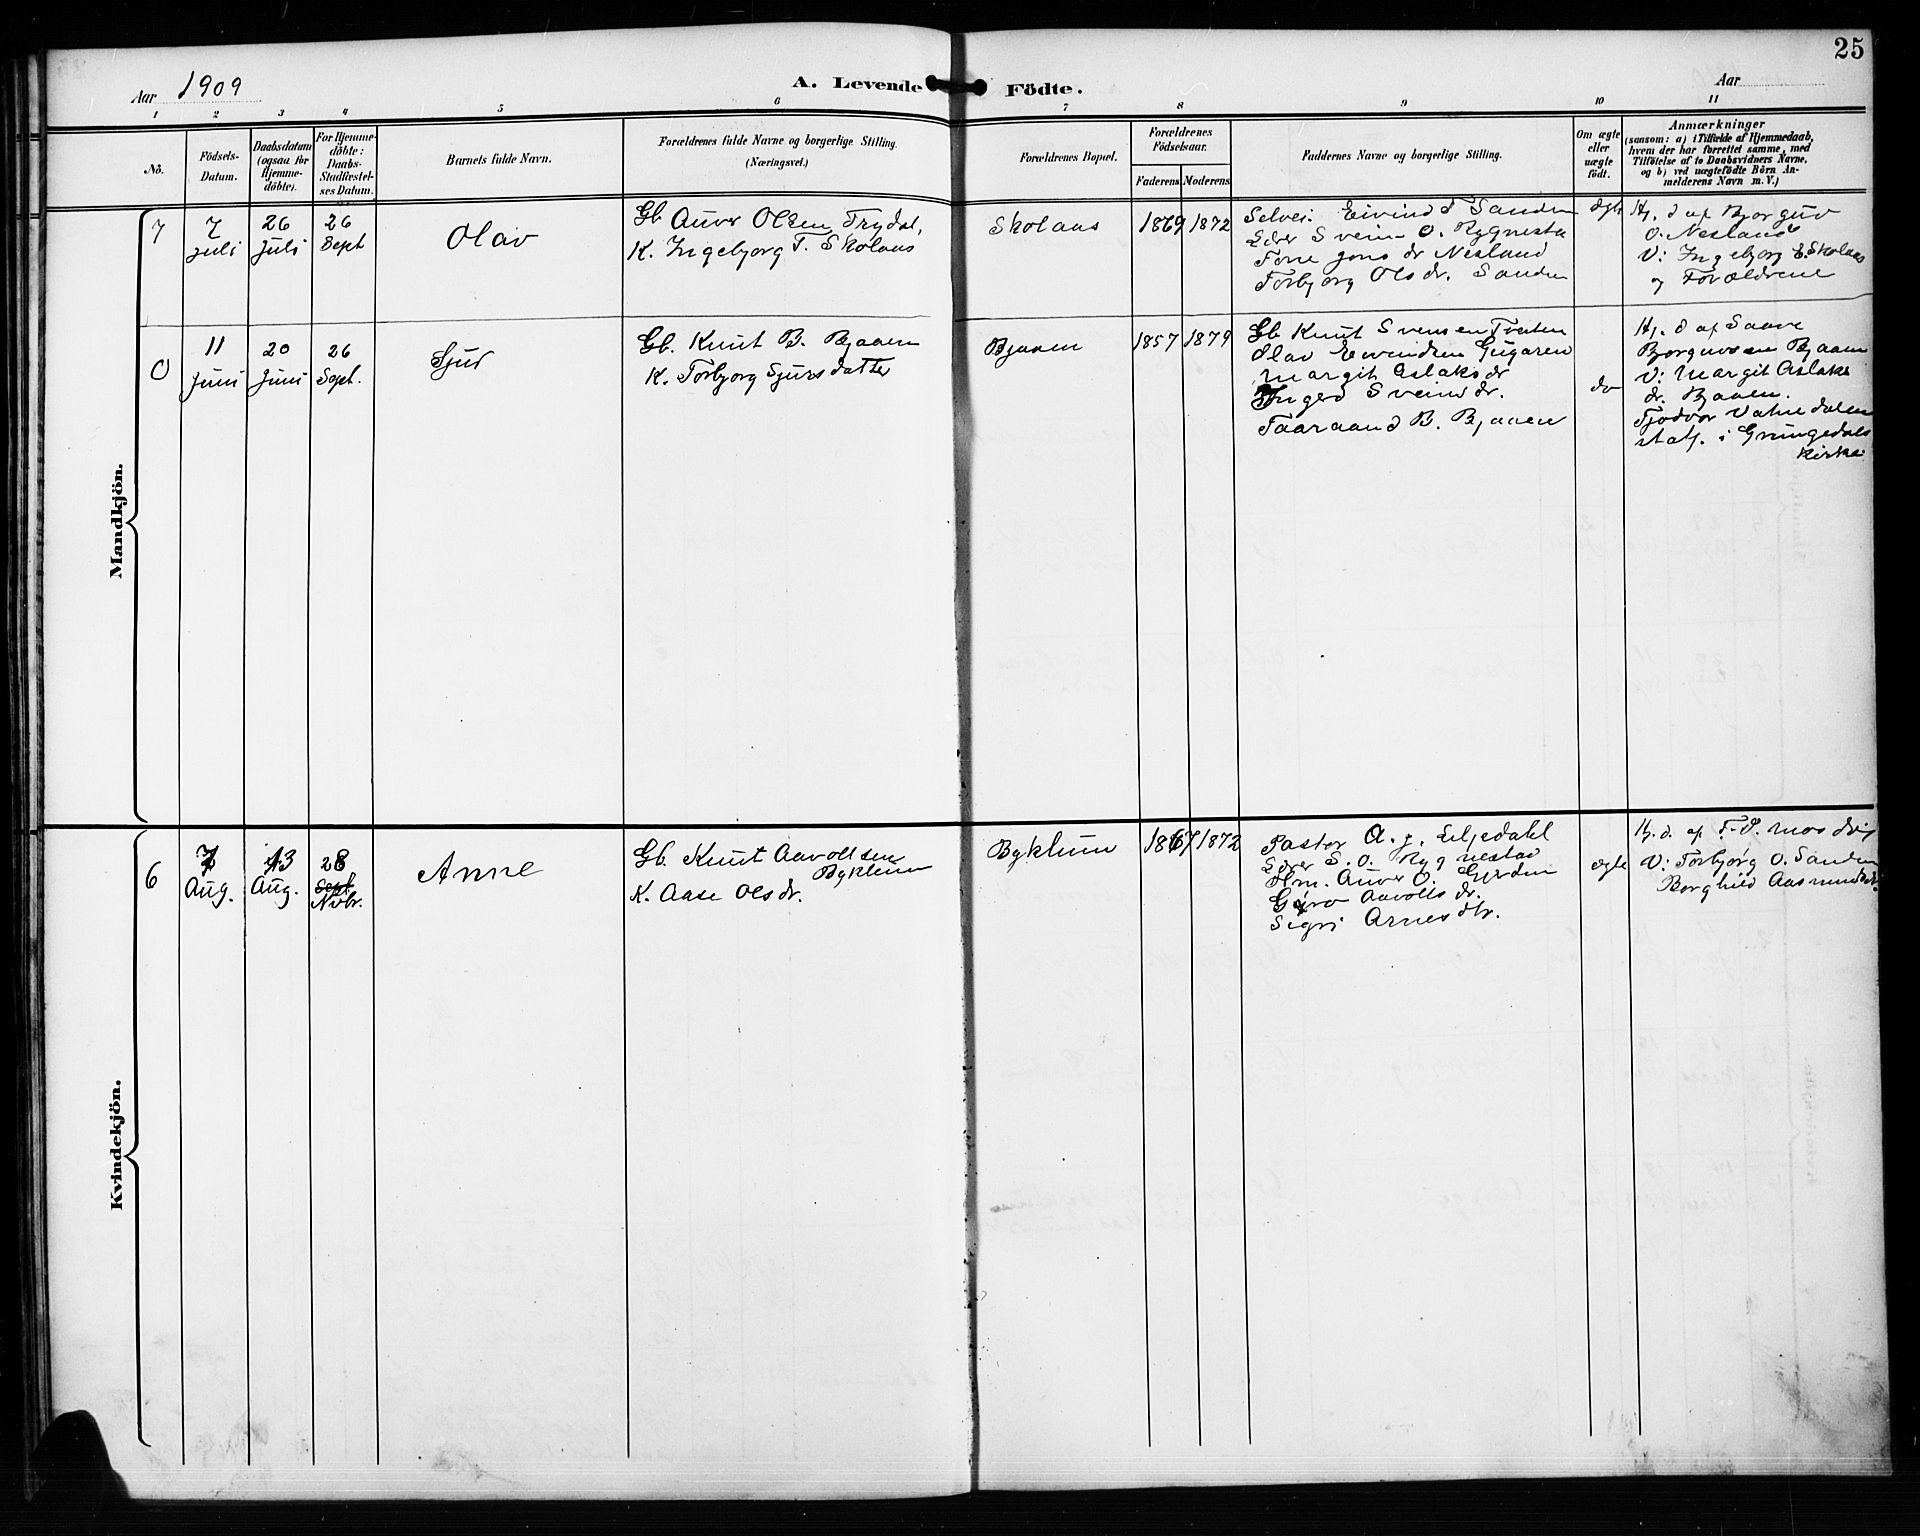 25
Aar 1909
A. Levende Födte.
Aar
1 2 3 4 5 6 7 8 9 10 11
No.
Födsels-Datum.
Daabsdatum (ogsaa for Hjemme-döbte).
For Hjemme-döbte: Daabs-Stadfæstel-ses Datum.
Barnets fulde Navn.
Forældrenes fulde Navne og borgerlige Stilling.
(Næringsvei.)
Forældrenes Bopæl.
Forældrenes Födselsaar.
Faderens. Moderens
Faddernes Navne og borgerlige Stilling.
Om ægte eller uægte födt.
Anmærkninger
(saasom: a) i Tilfælde af Hjemmedaab,
hvem der har forrettet samme, med
Tilföielse af to Daabsvidners Navne,
og b) ved uægtefödte Börn An-
melderens Navn m. V.)
Mandkjön.
7
7 juli
26 Juli
26 Sept
Olav
Gb Auver Olsen Trydal,
K. Ingebjorg T. Skolaas
Skolaas
1869 1872
Selvei. Eivind T Sanden
Lærer Svein O. Rygnesta
Tone Jons dr Nesland
Torbjorg Olsdr. Sanden
ægte
Hj. d af Bjorguv
O. Neslans
V: Ingebjorg E. Skolaas
og Forældrene
11 Juni
20 Juni
26 Sept.
Sjur
Gb. Knut B. Bjaaen
K. Torbjorg Sjursdatter
Bjaaen
1857 1879
Gb Knut Svensen Tveiten
Olav Eivindsen Gugaren
Margit Aslaksdr
Inger Sveindr.
Taaraand B. Bjaaen
do
Hj. d af Saave
Bjorguvsen Bjaaen
V: Margit Aslaks
dr. Bjaaen.
Tjodvor Vatnedalen
staf. i Grungedals
Kirke
Kvindekjön.
6
7 Aug.
13 Aug.
28 Sept Nvbr.
Anne
Gb. Knut Aavoltsen
Byklum
K. Aase Olsdr.
Byklum
1867 1872
Pastor A. J. Liljedahl
Lærer S. O. Rygnestad
Hm. Auver O. Gjerden
Gyro Aavoltsdr.
Sigri Arnesdtr.
ægte
Hj. d. af T. P. Mosdøl
V: Torbjørg O. Sanden
Borghild Aasmundsdr.